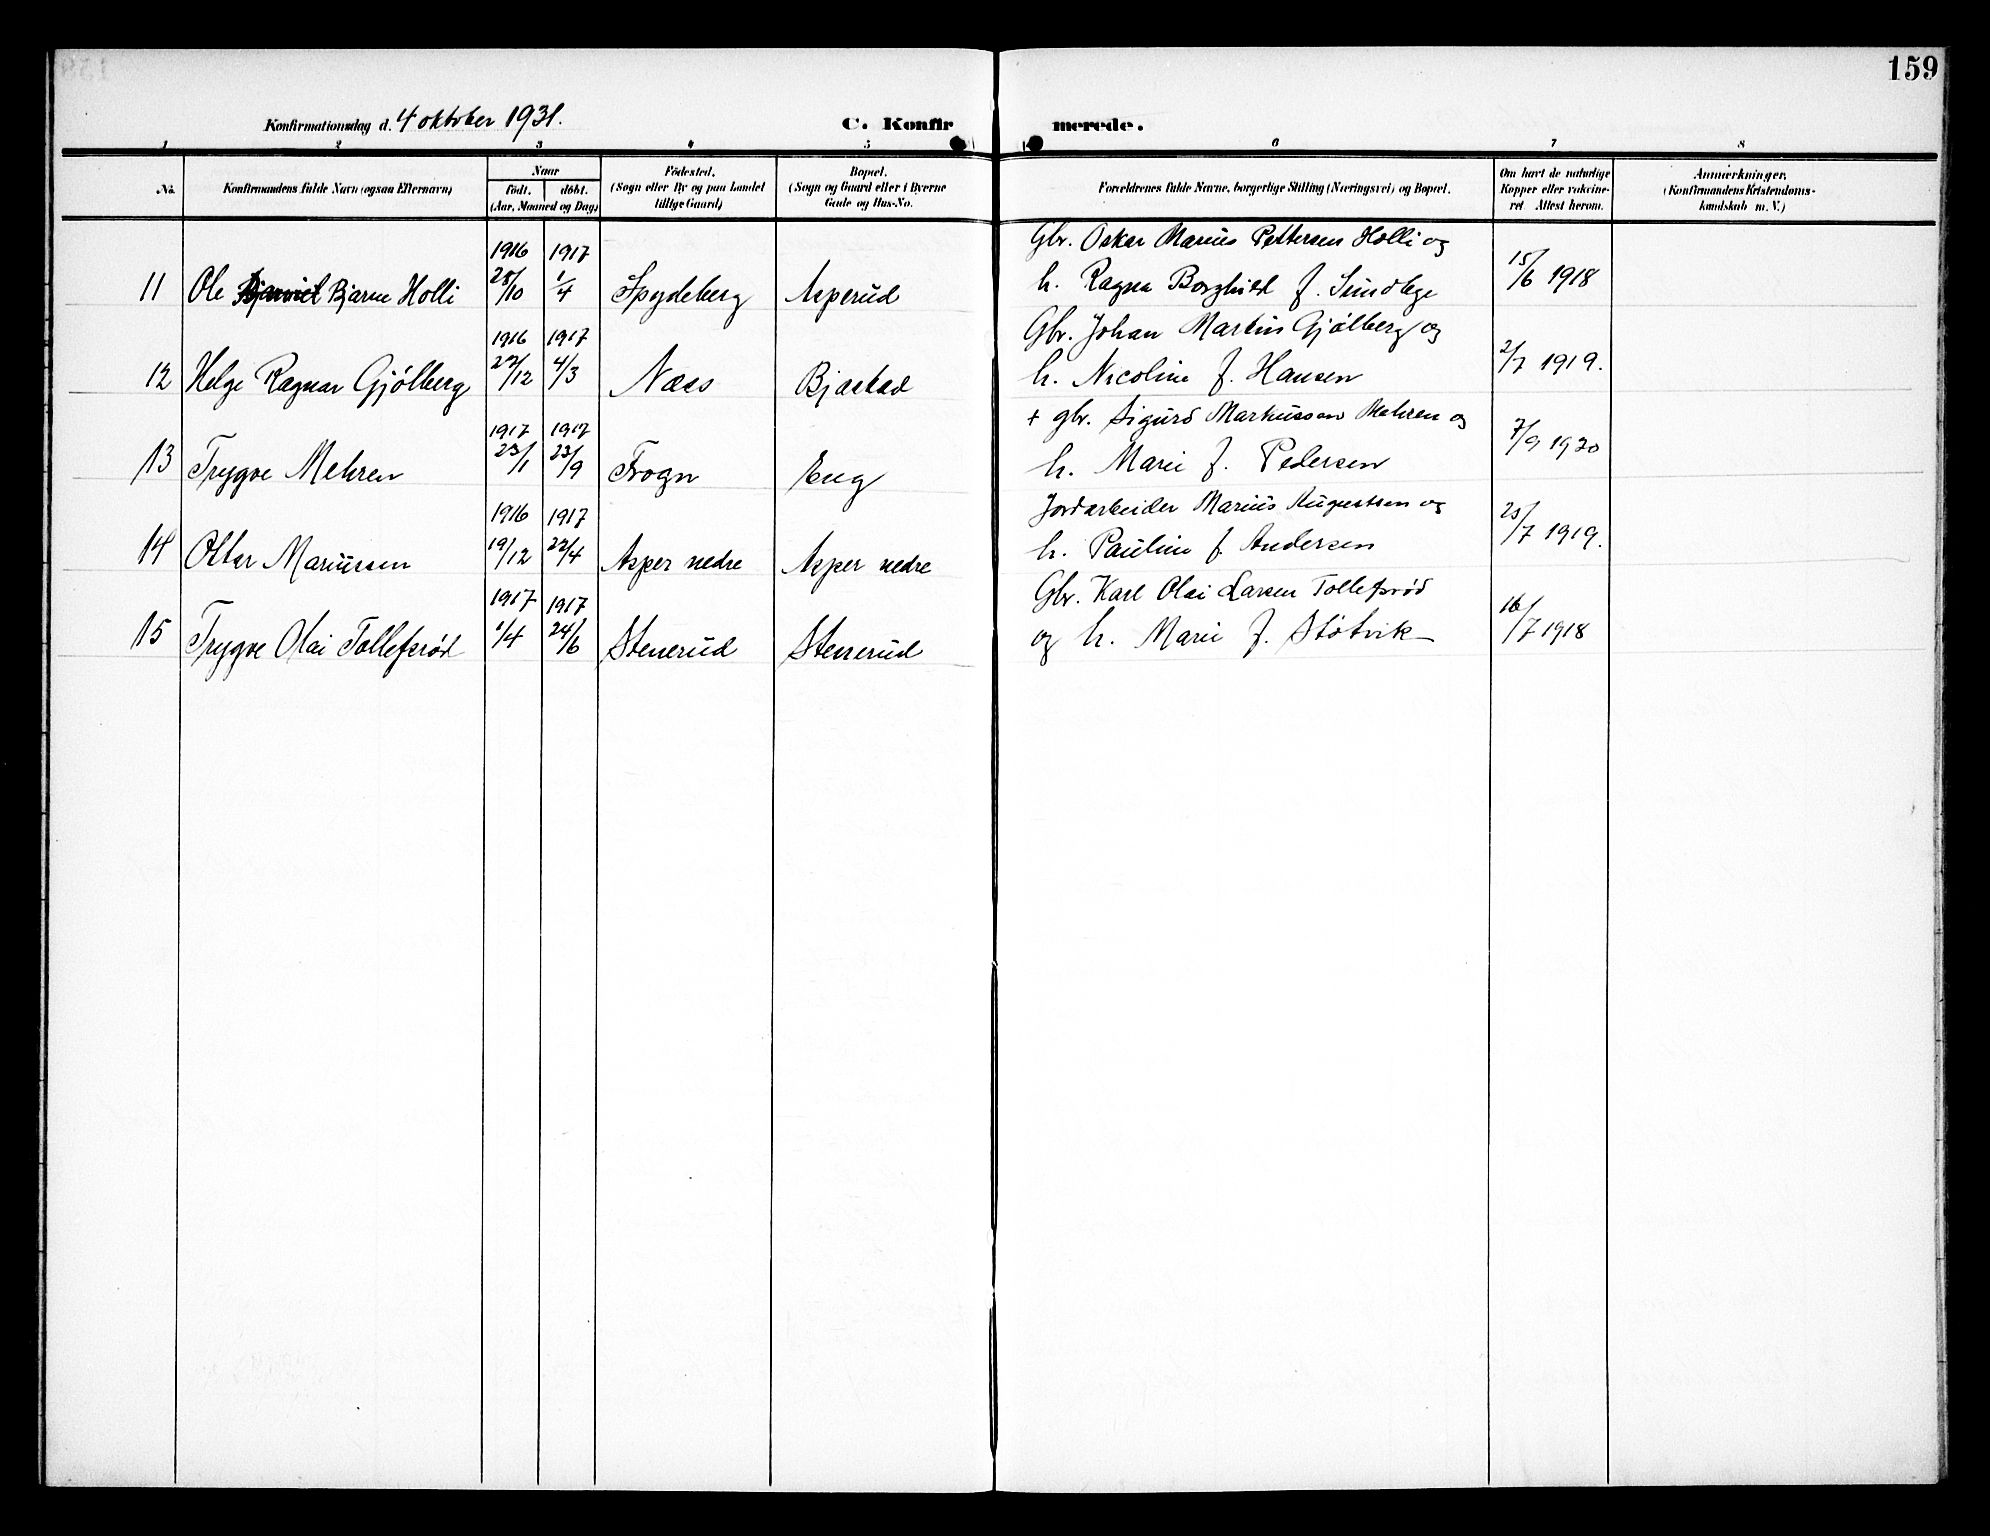 159
Konfirmationsdag d. 4 oktober 1931. C. Konfirmerede.
1 2 3 4 5 6 7 8
No. Konfirmandens fulde Navn (ogsaa Efternavn) Naar Födested. Bopæl. Forældrenes fulde Navne, borgerlige Stilling (Næringsvei) og Bopæl. Om havt de naturlige Anmærkninger.
födt. döbt. (Sogn eller By og paa Landet (Sogn og Gaard eller i Byerne Kopper eller vakcine- (Konfirmandens Kristendoms-
(Aar, Maaned og Dag) tillige Gaard) Gade og Hus-No. ret Attest herom. kundskab m. V.)
1916 1917 Gbr. Oskar Marius Pettersen Holli og
11 Ole Bjarne Holli 25/10 1/4 Spydeberg Asperud h. Ragna Borghild f. Sundbye 15/6 1918
1916 1917 Gbr. Johan Martin Gjölberg og
12 Helge Ragnar Gjölberg 27/12 4/3 Næs Bjastad h. Nicoline f. Hansen 2/7 1919.
1917 1917 + gbr. Sigurd Markusson Mehren og
13 Trygve Mehren 23/1 23/9 Frogn Eng h. Marie f. Pedersen 7/9 1920
1916 1917 Jordarbeider Marius Augustsen og
14 Ottar Mariussen 19/12 22/4 Asper nedre Asper nedre h. Pauline f. Andersen 23/7 1919.
1917 1917 Gbr. Karl Olai Larsen Tollefsröd
15 Trygve Olai Tollefsröd 1/4 24/6 Stenerud Stenerud og h. Marie f. Stötvik 16/7 1918